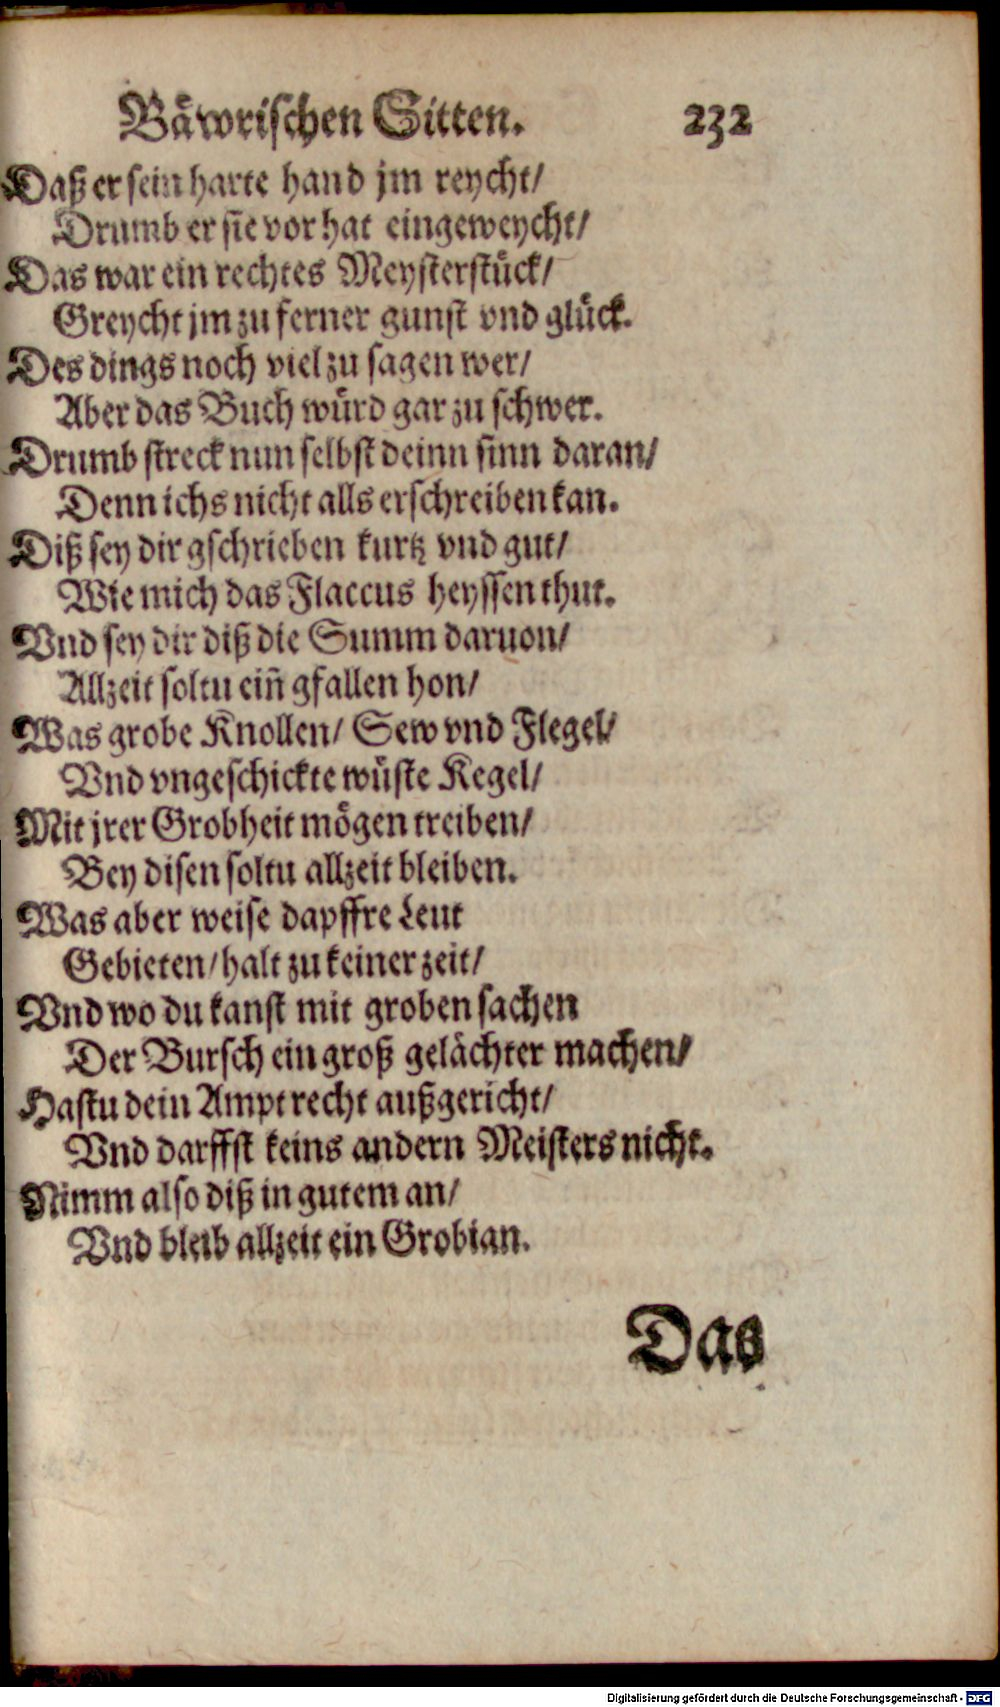 Bäwrischen Sitten. 232
Daß er sein harte hand jm reycht/
Drumb er sie vor hat eingeweycht/
Das war ein rechtes Meysterstück/
Greycht jm zu ferner gunst vnd glück.
Des dings noch viel zu sagen wer/
Aber das Buch würd gar zu schwer.
Drumb streck nun selbst deinn sinn daran/
Denn ichs nicht alls erschreiben kan.
Diß sey dir gschrieben kurtz vnd gut/
Wie mich das Flaccus heyssen thut.
Vnd sey dir diß die Summ daruon/
Allzeit soltu ein̄ gfallen hon/
Was grobe Knollen/ Sew vnd Flegel/
Vnd vngeschickte wüste Kegel/
Mit jrer Grobheit mögen treiben/
Bey disen soltu allzeit bleiben.
Was aber weise dapffre Leut
Gebieten/ halt zu keiner zeit/
Vnd wo du kanst mit groben sachen
Der Bursch ein groß gelächter machen/
Hastu dein Ampt recht außgericht/
Vnd darffst keins andern Meisters nicht.
Nimm also diß in gutem an/
Vnd bleib allzeit ein Grobian.
Das
Digitalisierung gefördert durch die Deutsche Forschungsgemeinschaft - DFG